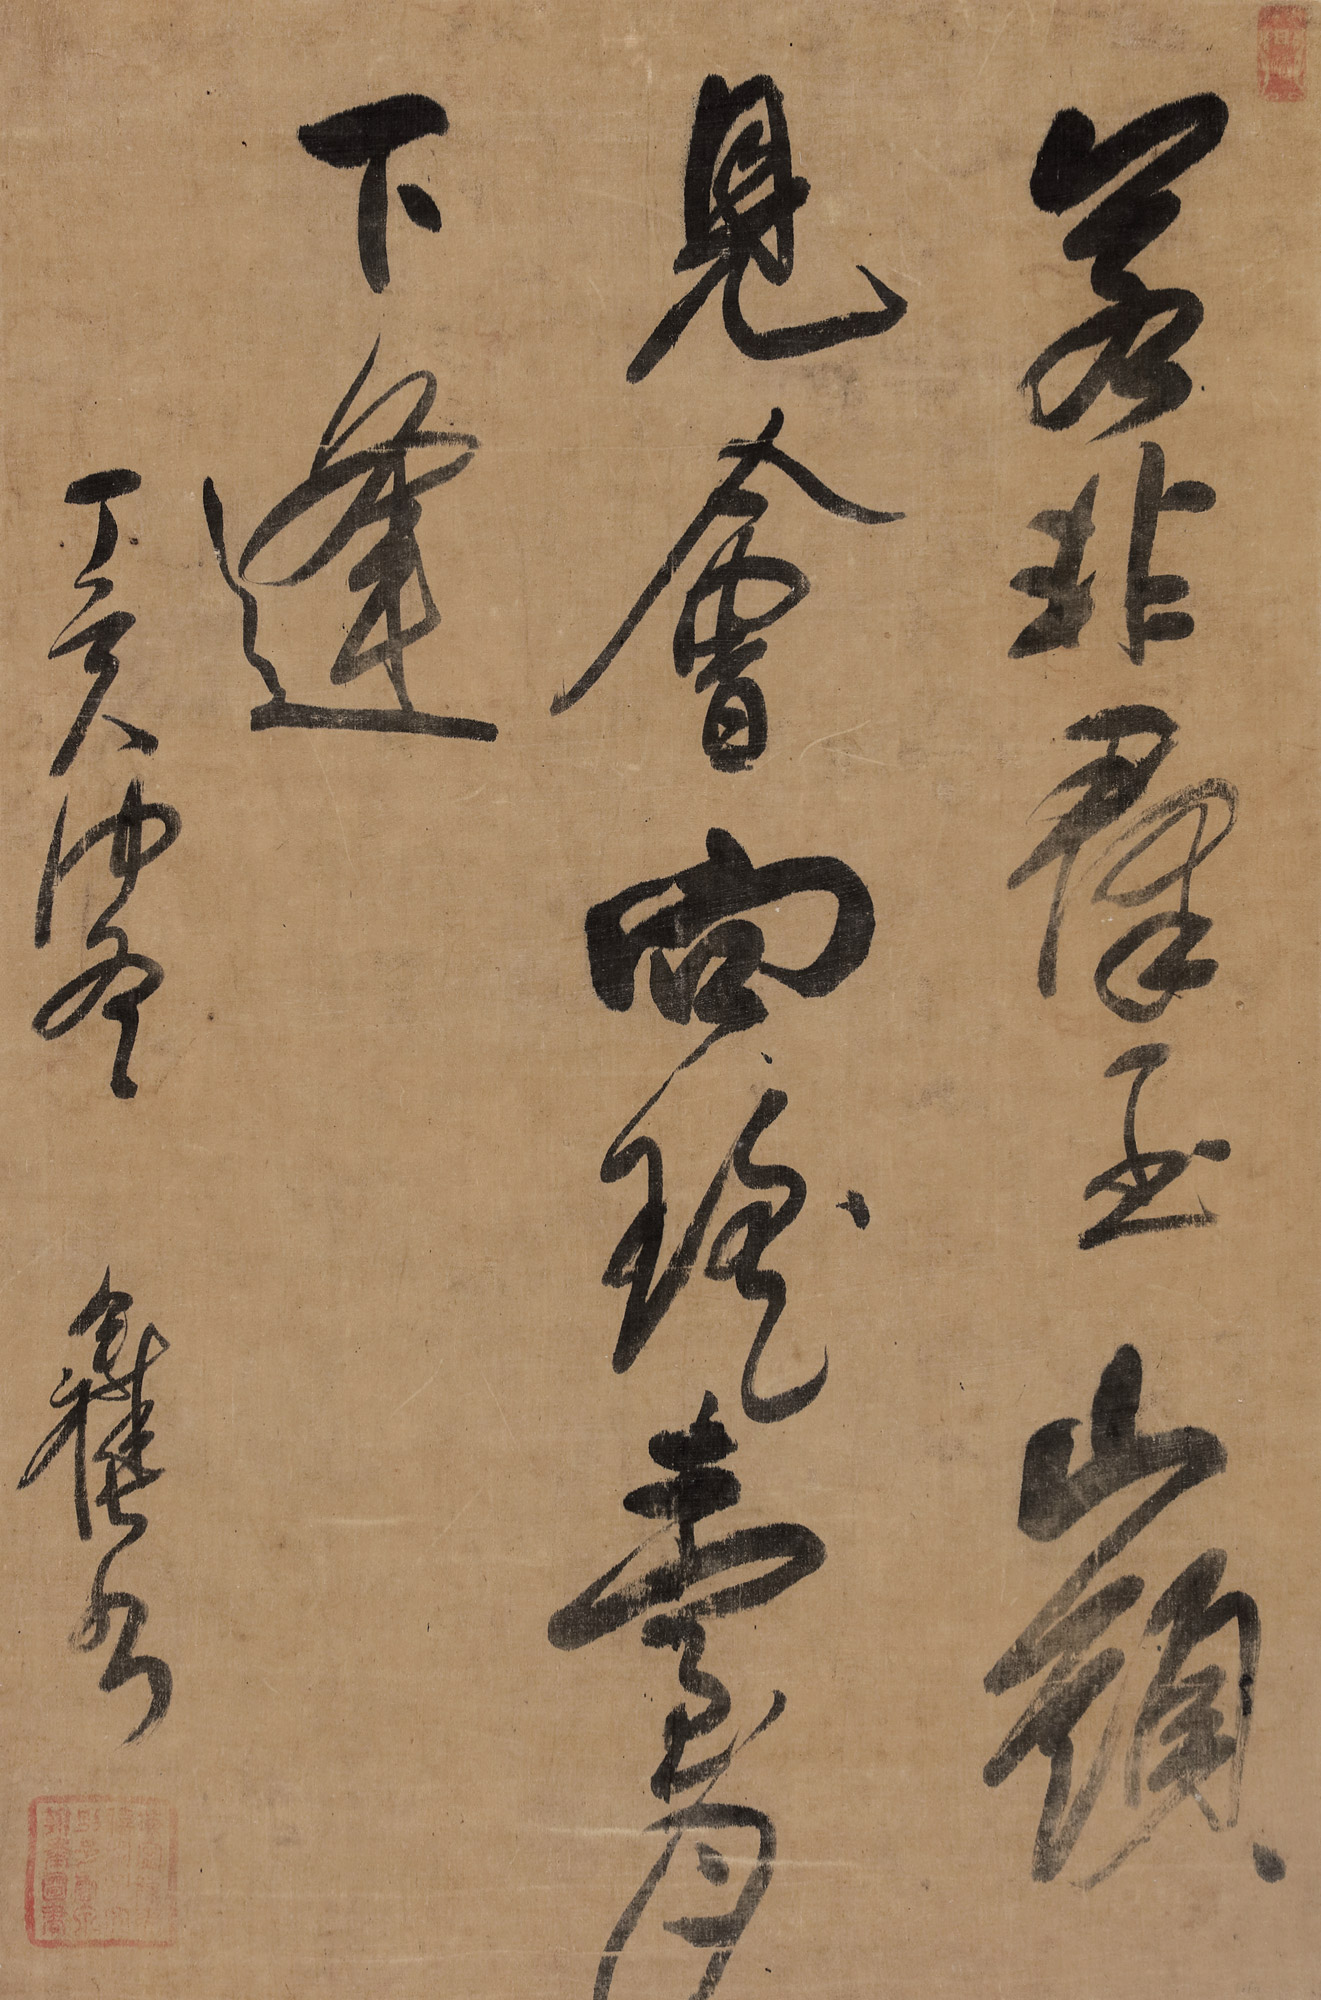 若非羣玉山頭
見會向瑤臺月
下逢
丁亥仲冬